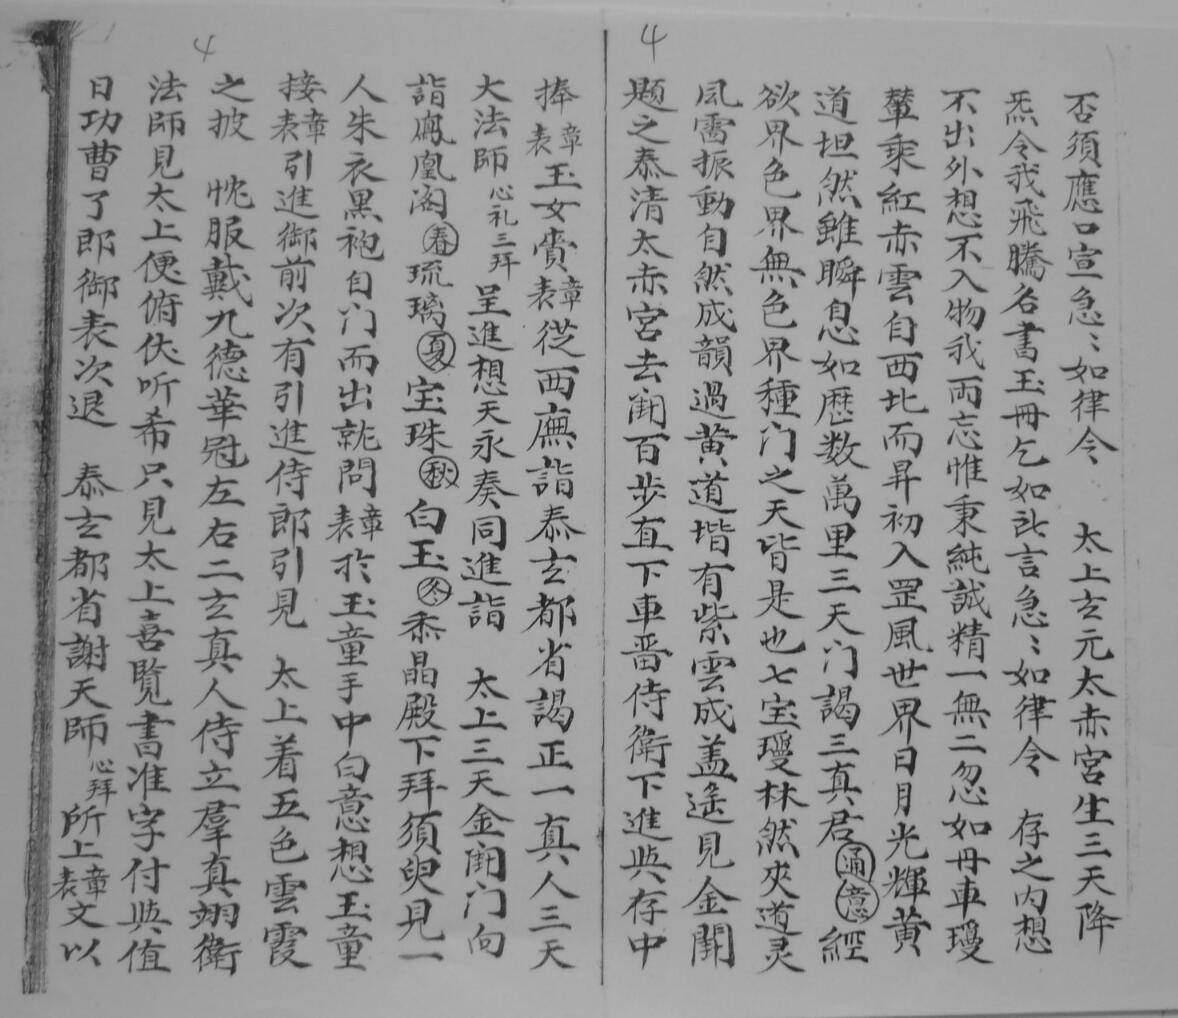 4
否須應口宣急〻如律令　太上玄元太赤宮生三天降
炁令我飛騰名書玉冊乞如訴言急〻如律令　存之内想
不出外想不入物我両忘惟秉純誠精一無二忽如丹車瓊
輦乘紅赤雲自西北而昇初入罡風世界日月光輝黄
道坦然雖瞬息如歴数萬里三天门謁三真君通意經
欲界色界無色界種门之天皆是也七宝瓊林然夾道灵
風雷振動自然成韻過黄道堦有紫雲成盖遥見金闕
題之泰清太赤宮去闕百步直下車畨侍衛下進与存中
4
捧章表玉女賫章表從西廡詣泰玄都省謁正一真人三天
大法師心礼三拜呈進想天永奏同進詣　太上三天金闕门向
詣鳳凰阁春琉璃夏宝珠秋白玉冬黍晶殿下拜須臾見一
人朱衣黒袍自门而出就問章表於玉童手中白意想玉童
接章表引進御前次有引進侍郎引見　太上着五色雲霞
之披　帔服戴九德華冠左右二玄真人侍立羣真翊衛
法師見太上便俯伏听希只見太上喜覧書准字付与值
日功曹了郎御表次退　泰玄都省謝天師心拜所上章表文以